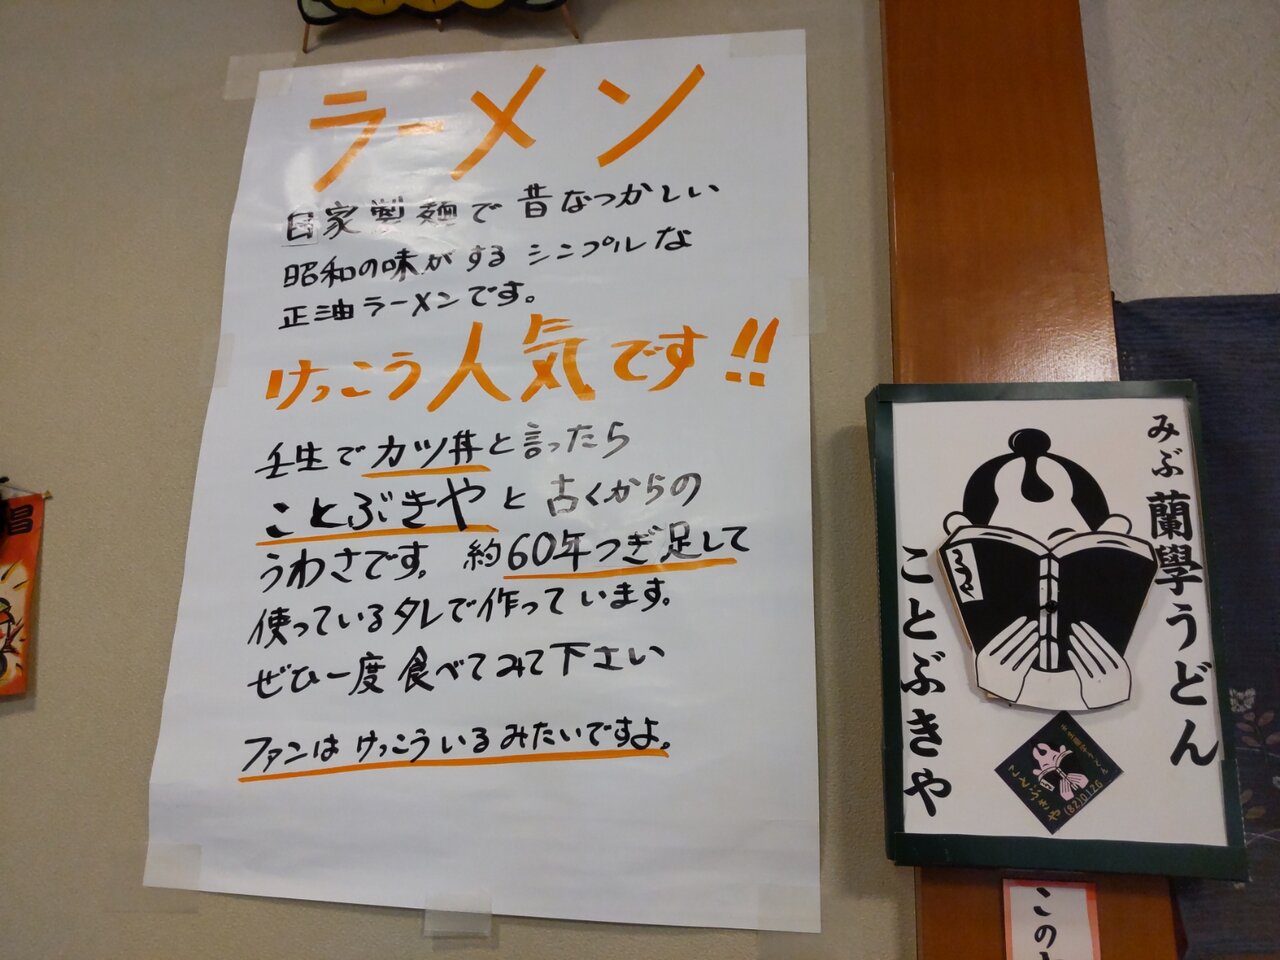 ラーメン
自家製麺で昔なつかしい
昭和の味がするシンプルな
正油ラーメンです。
けっこう人気です!!
壬生でカツ丼と言ったら
ことぶきやと古くからの
うわさです。約60年つぎ足して
使っているタレで作っています。
ぜひ一度食べてみて下さい
ファンはけっこういるみたいですよ。
みぶ蘭學うどん
ことぶきや
ことぶきや
(82)0126
この
昌